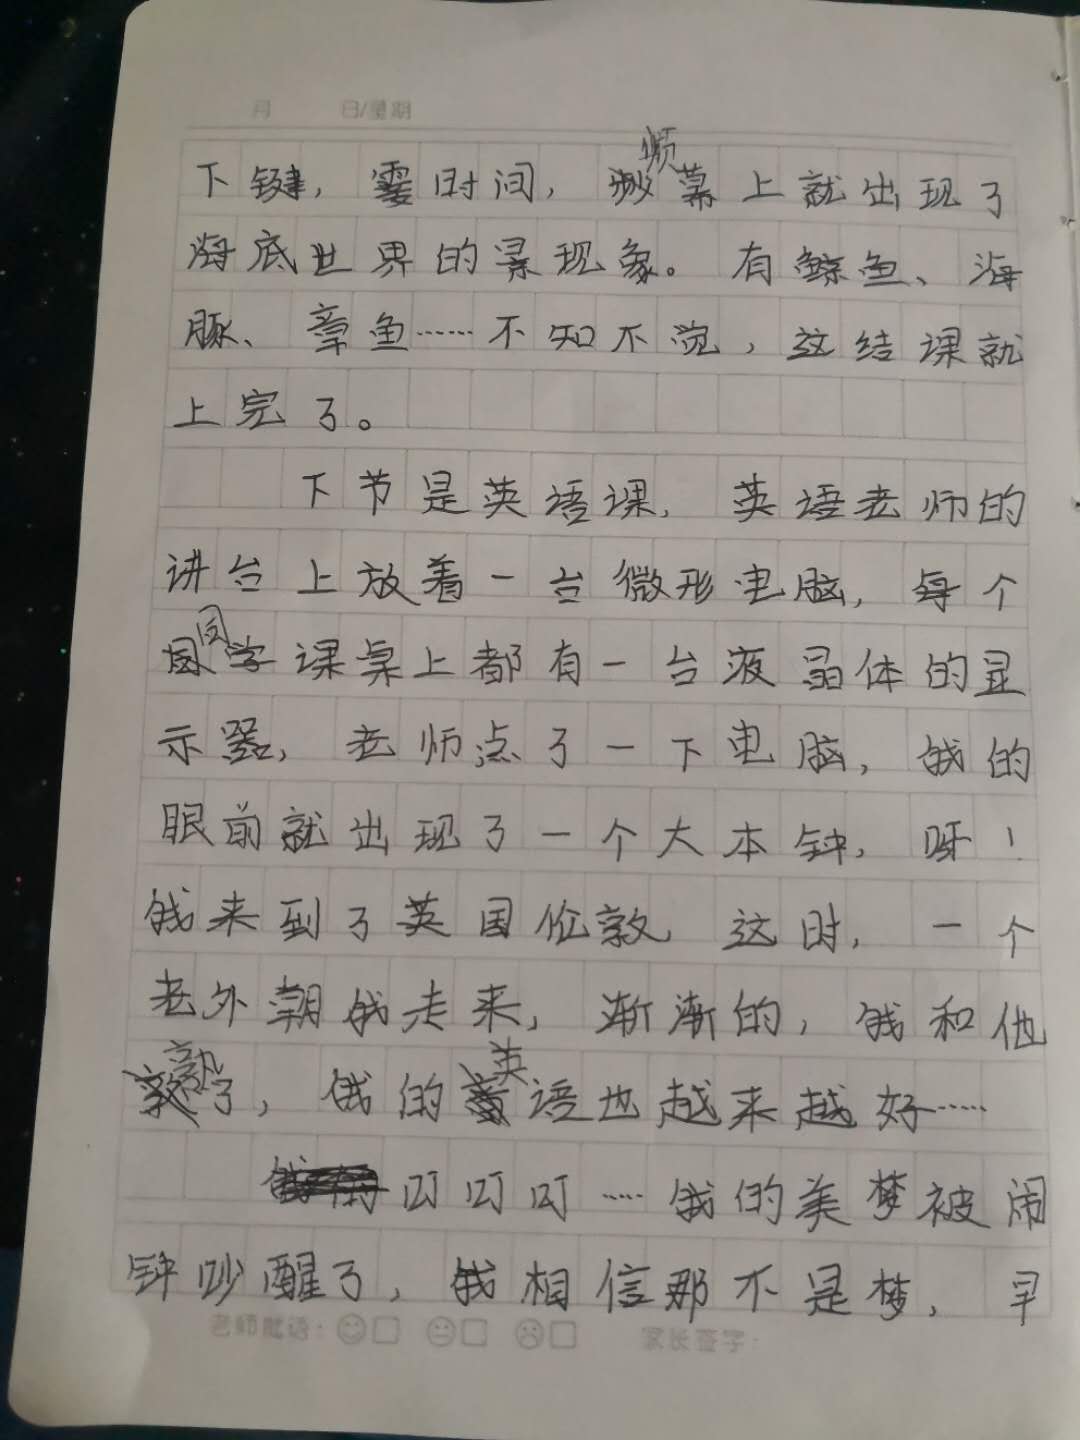 月 日/星期
下键，霎时间，幕上就出现了
海底世界的景现象。有鲸鱼、海
豚、章鱼……不知不觉，这结课就
上完了。
下节是英语课，英语老师的
讲台上放着一台微形电脑，每个
同学课桌上都有一台液晶体的显
示器，老师点了一下电脑，我的
眼前就出现了一个大本钟，呀！
我来到了英国伦敦 这时，一个
老外朝我走来，渐渐的，我和他
熟了，我的英语也越来越好……
叮叮叮……我的美梦被闹
钟吵醒了，我相信那不是梦，早
老师批语：
家长签字：